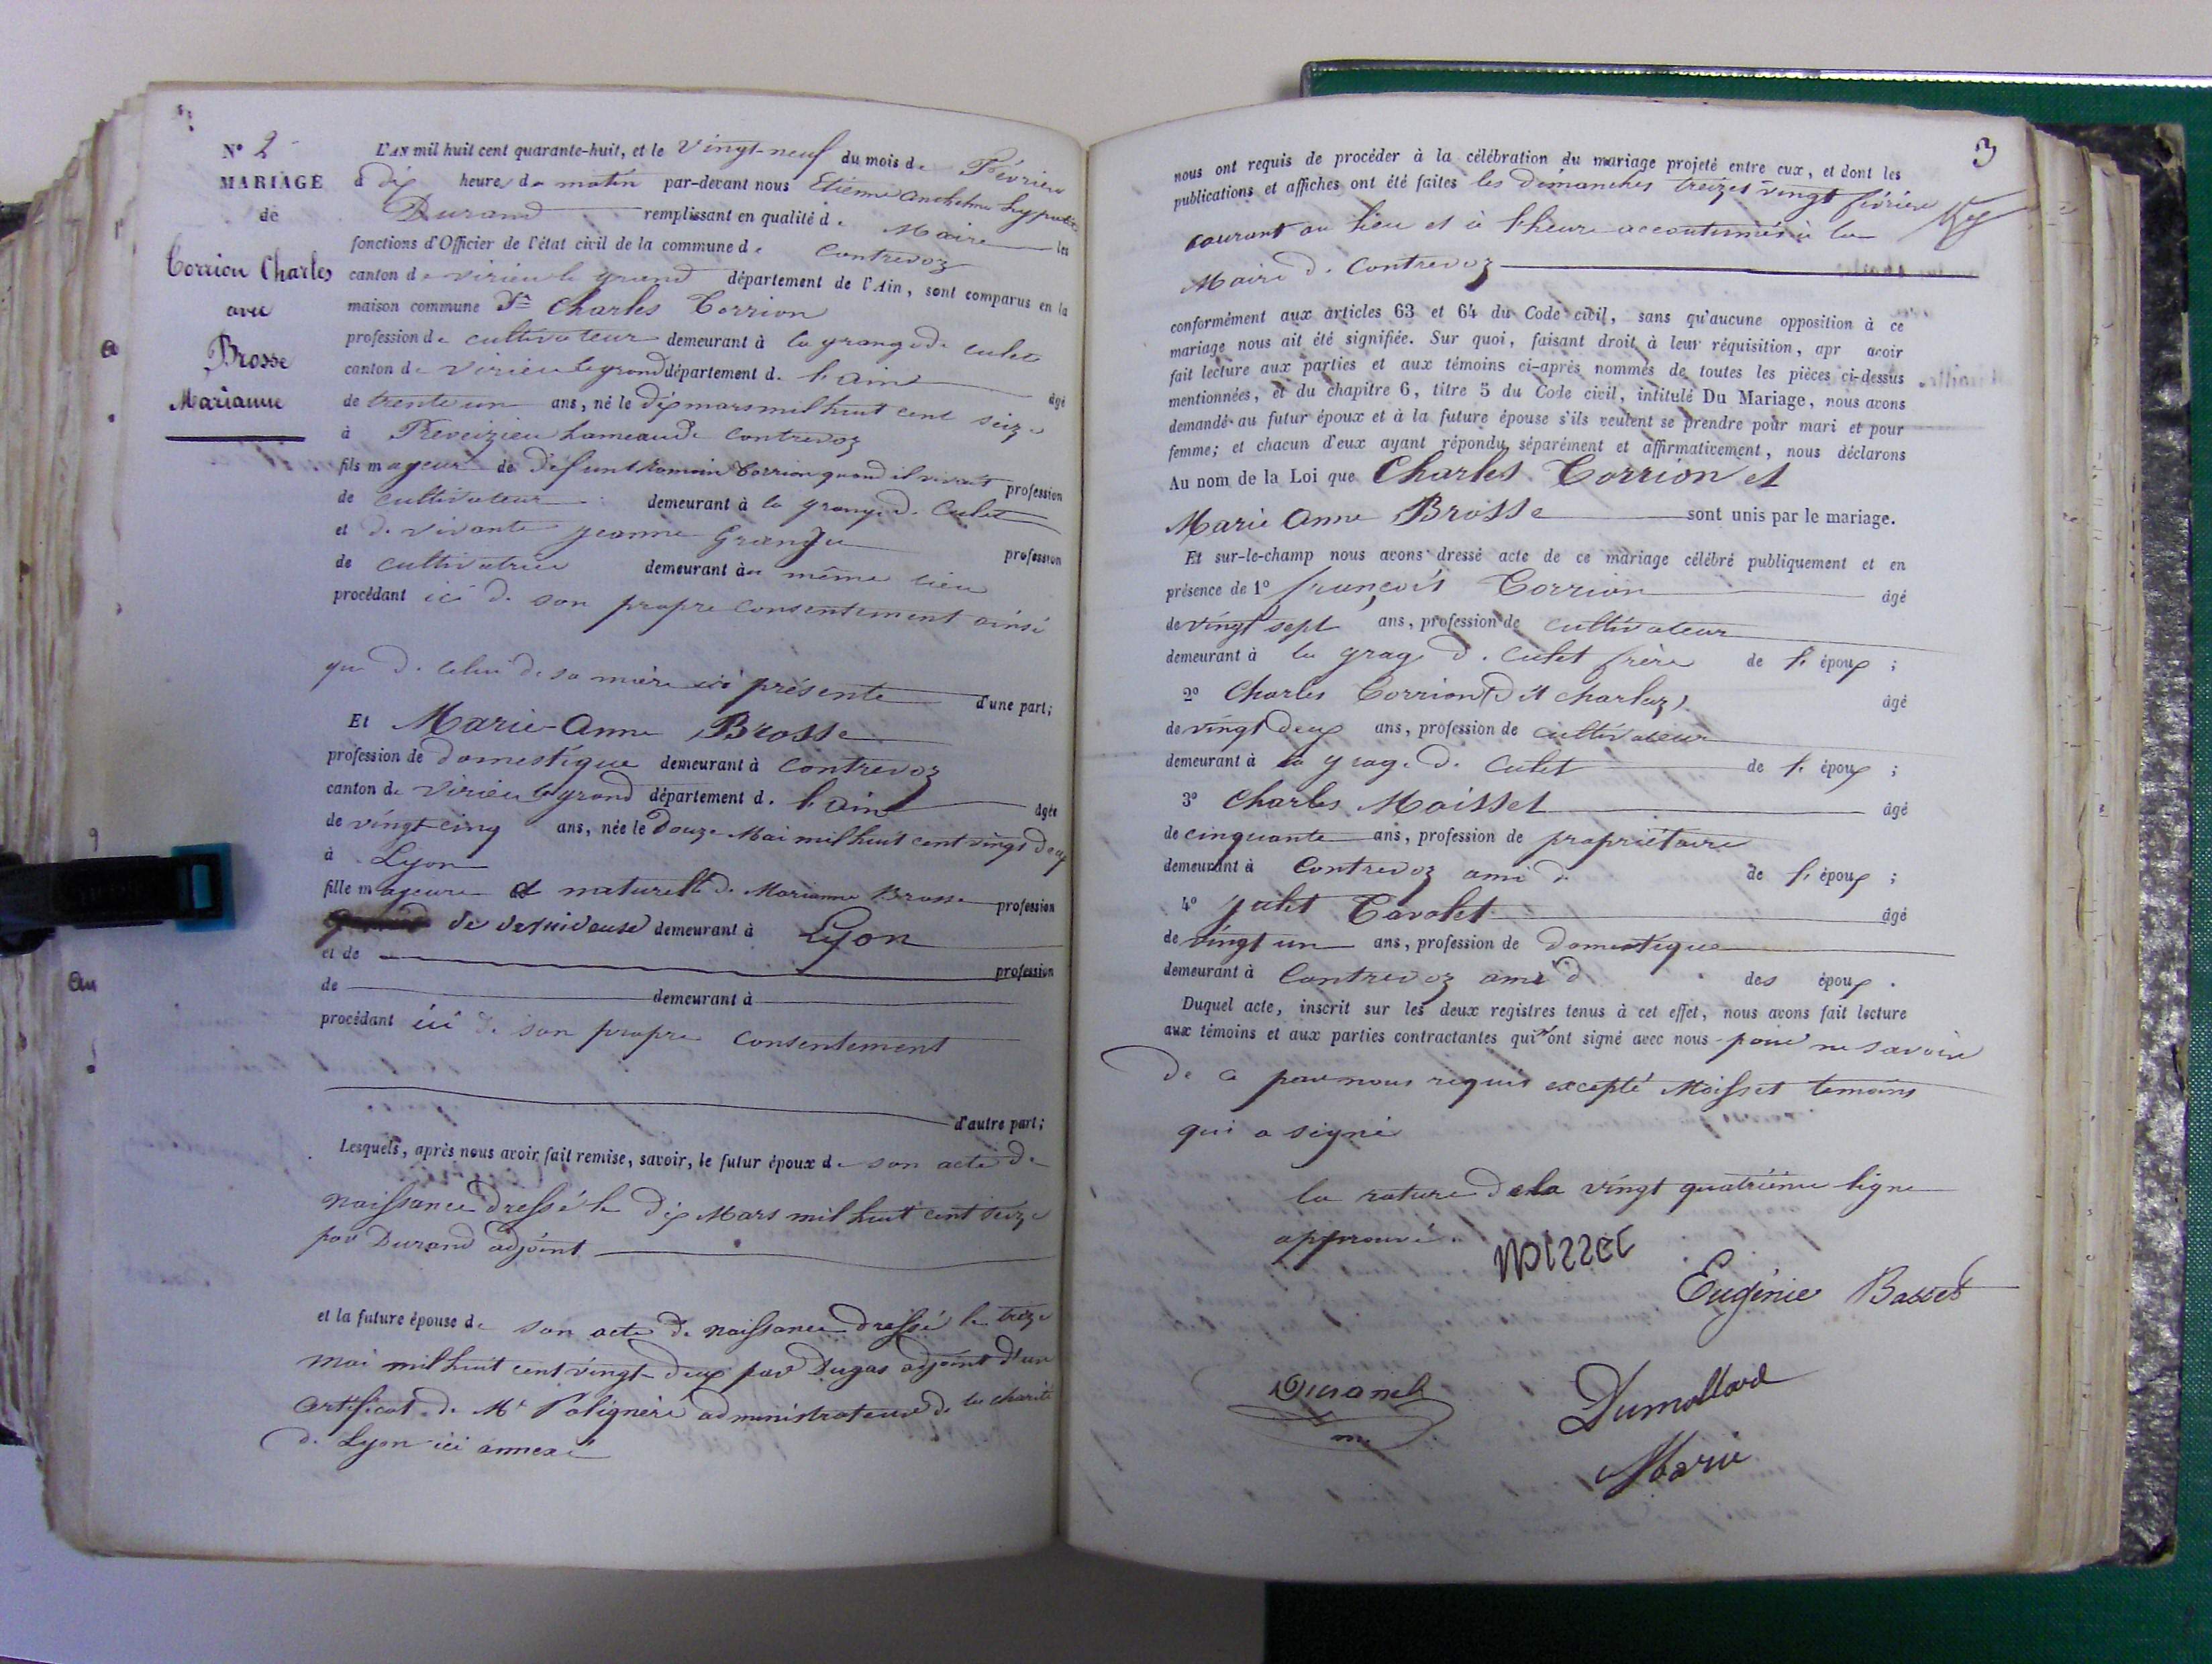 N° 2
MARIAGE
de
Corrion Charles
avec
Brosse
Marianne
L'AN mil huit cent quarante-huit, et le Vingt-neuf du mois de Février
à dix heures du matin par-devant nous Etienne anthelme hypolite
Durand remplissant en qualité de Maire les
fonctions d'Officier de l'état civil de la commune de Contrevoz
canton de virieu le grand département de l'Ain, sont comparus en la
maison commune Sr Charles Corrion
profession de cultivateur demeurant à la grange de culet
canton de Virieu le grand département de l'ain âgé
de trente un ans, né le dix mars mil huit cent seize
à Preveizieu hameau de Contrevoz
fils majeur de défunt Romain Corrion quand il vivait profession
de cultivateur demeurant à la grange de Culet
et de vivante jeanne Grange profession
de cultivatrice demeurant au même lieu
procédant ici de son propre consentement ainsi
que de celui de sa mère ici présente d'une part;
Et Marie-Anne Brosse
profession de domestique demeurant à Contrevoz
canton de Virieu le grand département de l'ain âgée
de vingt-cinq ans, née le Douze Mai mil huit cent vingt deux
à Lyon
fille majeure et naturelle de Marianne Brosse profession
de devideuse demeurant à Lyon
et de profession
de demeurant à
procédant ici de son propre consentement
d'autre part;
Lesquels, après nous avoir fait remise, savoir, le futur époux de son acte de
naissance dressé le dix Mars mil huit cent seize
par Durand adjoint
et la future épouse de son acte de naissance dressé le treize
mai mil huit cent vingt-deux par Dugas adjoint d'un
certificat de Mr Polignère administrateur de la charité
de Lyon ici annexé
3
nous ont requis de procéder à la célébration du mariage projeté entre eux, et dont les
publications et affiches ont été faites les dimanches treize et vingt février
courant au lieu et à l'heure accoutumés à la
Mairie de Contrevoz
conformément aux articles 63 et 64 du Code civil, sans qu'aucune opposition à ce
mariage nous ait été signifiée. Sur quoi, faisant droit à leur réquisition, apr avoir
fait lecture aux parties et aux témoins ci-après nommés de toutes les pièces ci-dessus
mentionnées, et du chapitre 6, titre 5 du Code civil, intitulé Du Mariage, nous avons
demandé au futur époux et à la future épouse s'ils veulent se prendre pour mari et pour
femme; et chacun d'eux ayant répondu séparément et affirmativement, nous déclarons
Au nom de la Loi que Charles Corrion et
Marie Anne Brosse sont unis par le mariage.
Et sur-le-champ nous avons dressé acte de ce mariage célébré publiquement et en
présence de 1° françois Corrion âgé
de vingt sept ans, profession de cultivateur
demeurant à la grag de culet frère de l'époux;
2° Charles Corrion (dit charlaz) âgé
de vingt deux ans, profession de cultivateur
demeurant à la grag. de Culet de l'époux;
3° Charles Moisset âgé
de cinquante ans, profession de propriétaire
demeurant à Contrevoz ami d de l'époux;
4° Cavalet âgé
de vingt un ans, profession de domestique
demeurant à Contrevoz ami d des époux.
Duquel acte, inscrit sur les deux registres tenus à cet effet, nous avons fait lecture
aux témoins et aux parties contractantes qui n'ont signé avec nous pour ne savoir
de ce par nous requis excepté Moisset temoins
qui a signé
la rature de la vingt quatrième ligne
approuvé.
moisset
Eugénie Basset
Durand
Dumollard
Marie